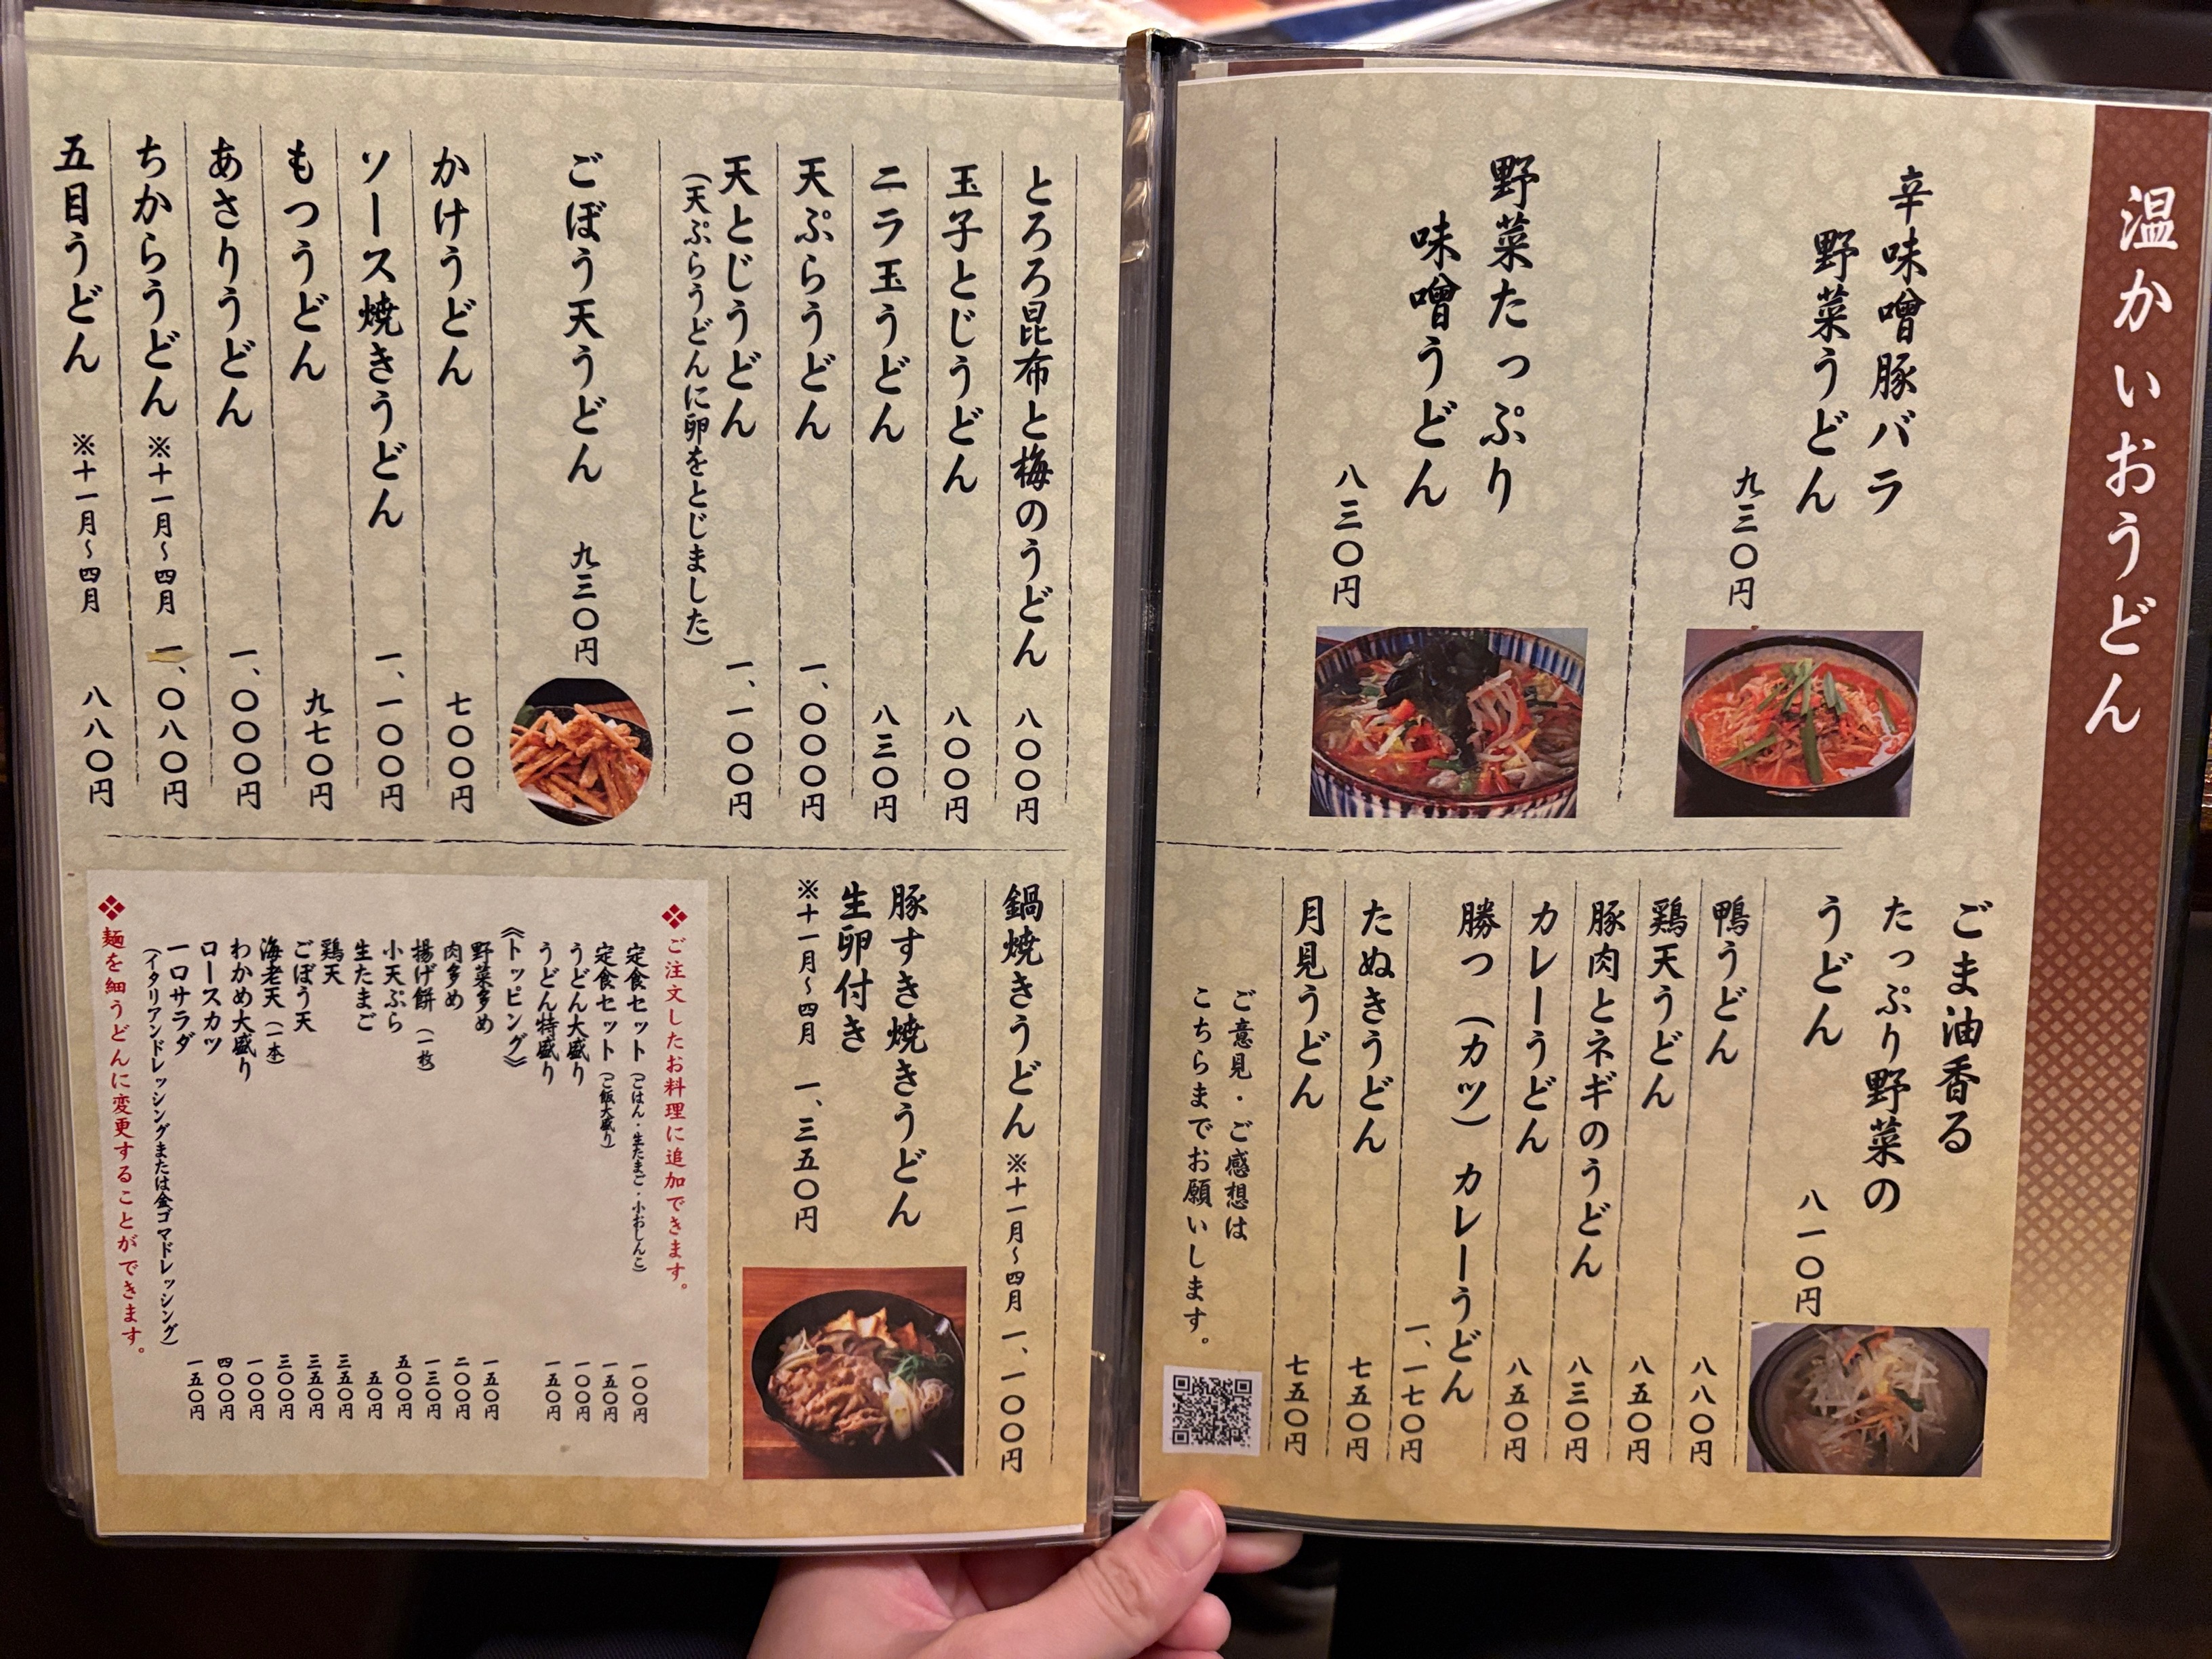 温かいおうどん
辛味噌豚バラ
野菜うどん
九三〇円
野菜たっぷり
味噌うどん
八三〇円
ごま油香る
たっぷり野菜の
うどん
八一〇円
鴨うどん 八八〇円
鶏天うどん 八五〇円
豚肉とネギのうどん 八三〇円
カレーうどん 八五〇円
勝つ(カツ)カレーうどん
一、一七〇円
たぬきうどん 七五〇円
月見うどん 七五〇円
ご意見・ご感想は
こちらまでお願いします。
とろろ昆布と梅のうどん 八〇〇円
玉子とじうどん 八〇〇円
ニラ玉うどん 八三〇円
天ぷらうどん 一、〇〇〇円
天とじうどん 一、一〇〇円
(天ぷらうどんに卵をとじました)
ごぼう天うどん 九三〇円
かけうどん 七〇〇円
ソース焼きうどん 一、一〇〇円
もつうどん 九七〇円
あさりうどん 一、〇〇〇円
ちからうどん ※十一月〜四月 一、〇八〇円
五目うどん ※十一月〜四月 八八〇円
鍋焼きうどん ※十一月〜四月 一、一〇〇円
豚すき焼きうどん
生卵付き
※十一月〜四月 一、三五〇円
❖ご注文したお料理に追加できます。
定食セット(ごはん・生たまご・小おしんこ) 一〇〇円
定食セット(ご飯大盛り) 一五〇円
うどん大盛り 一〇〇円
うどん特盛り 一五〇円
《トッピング》
野菜多め 一五〇円
肉多め 二〇〇円
揚げ餅(一枚) 一三〇円
小天ぷら 五〇〇円
生たまご 五〇円
鶏天 三五〇円
ごぼう天 三五〇円
海老天(一本) 三〇〇円
わかめ大盛り 一〇〇円
ロースカツ 四〇〇円
一口サラダ 一五〇円
(イタリアンドレッシングまたは金ゴマドレッシング)
❖麺を細うどんに変更することができます。